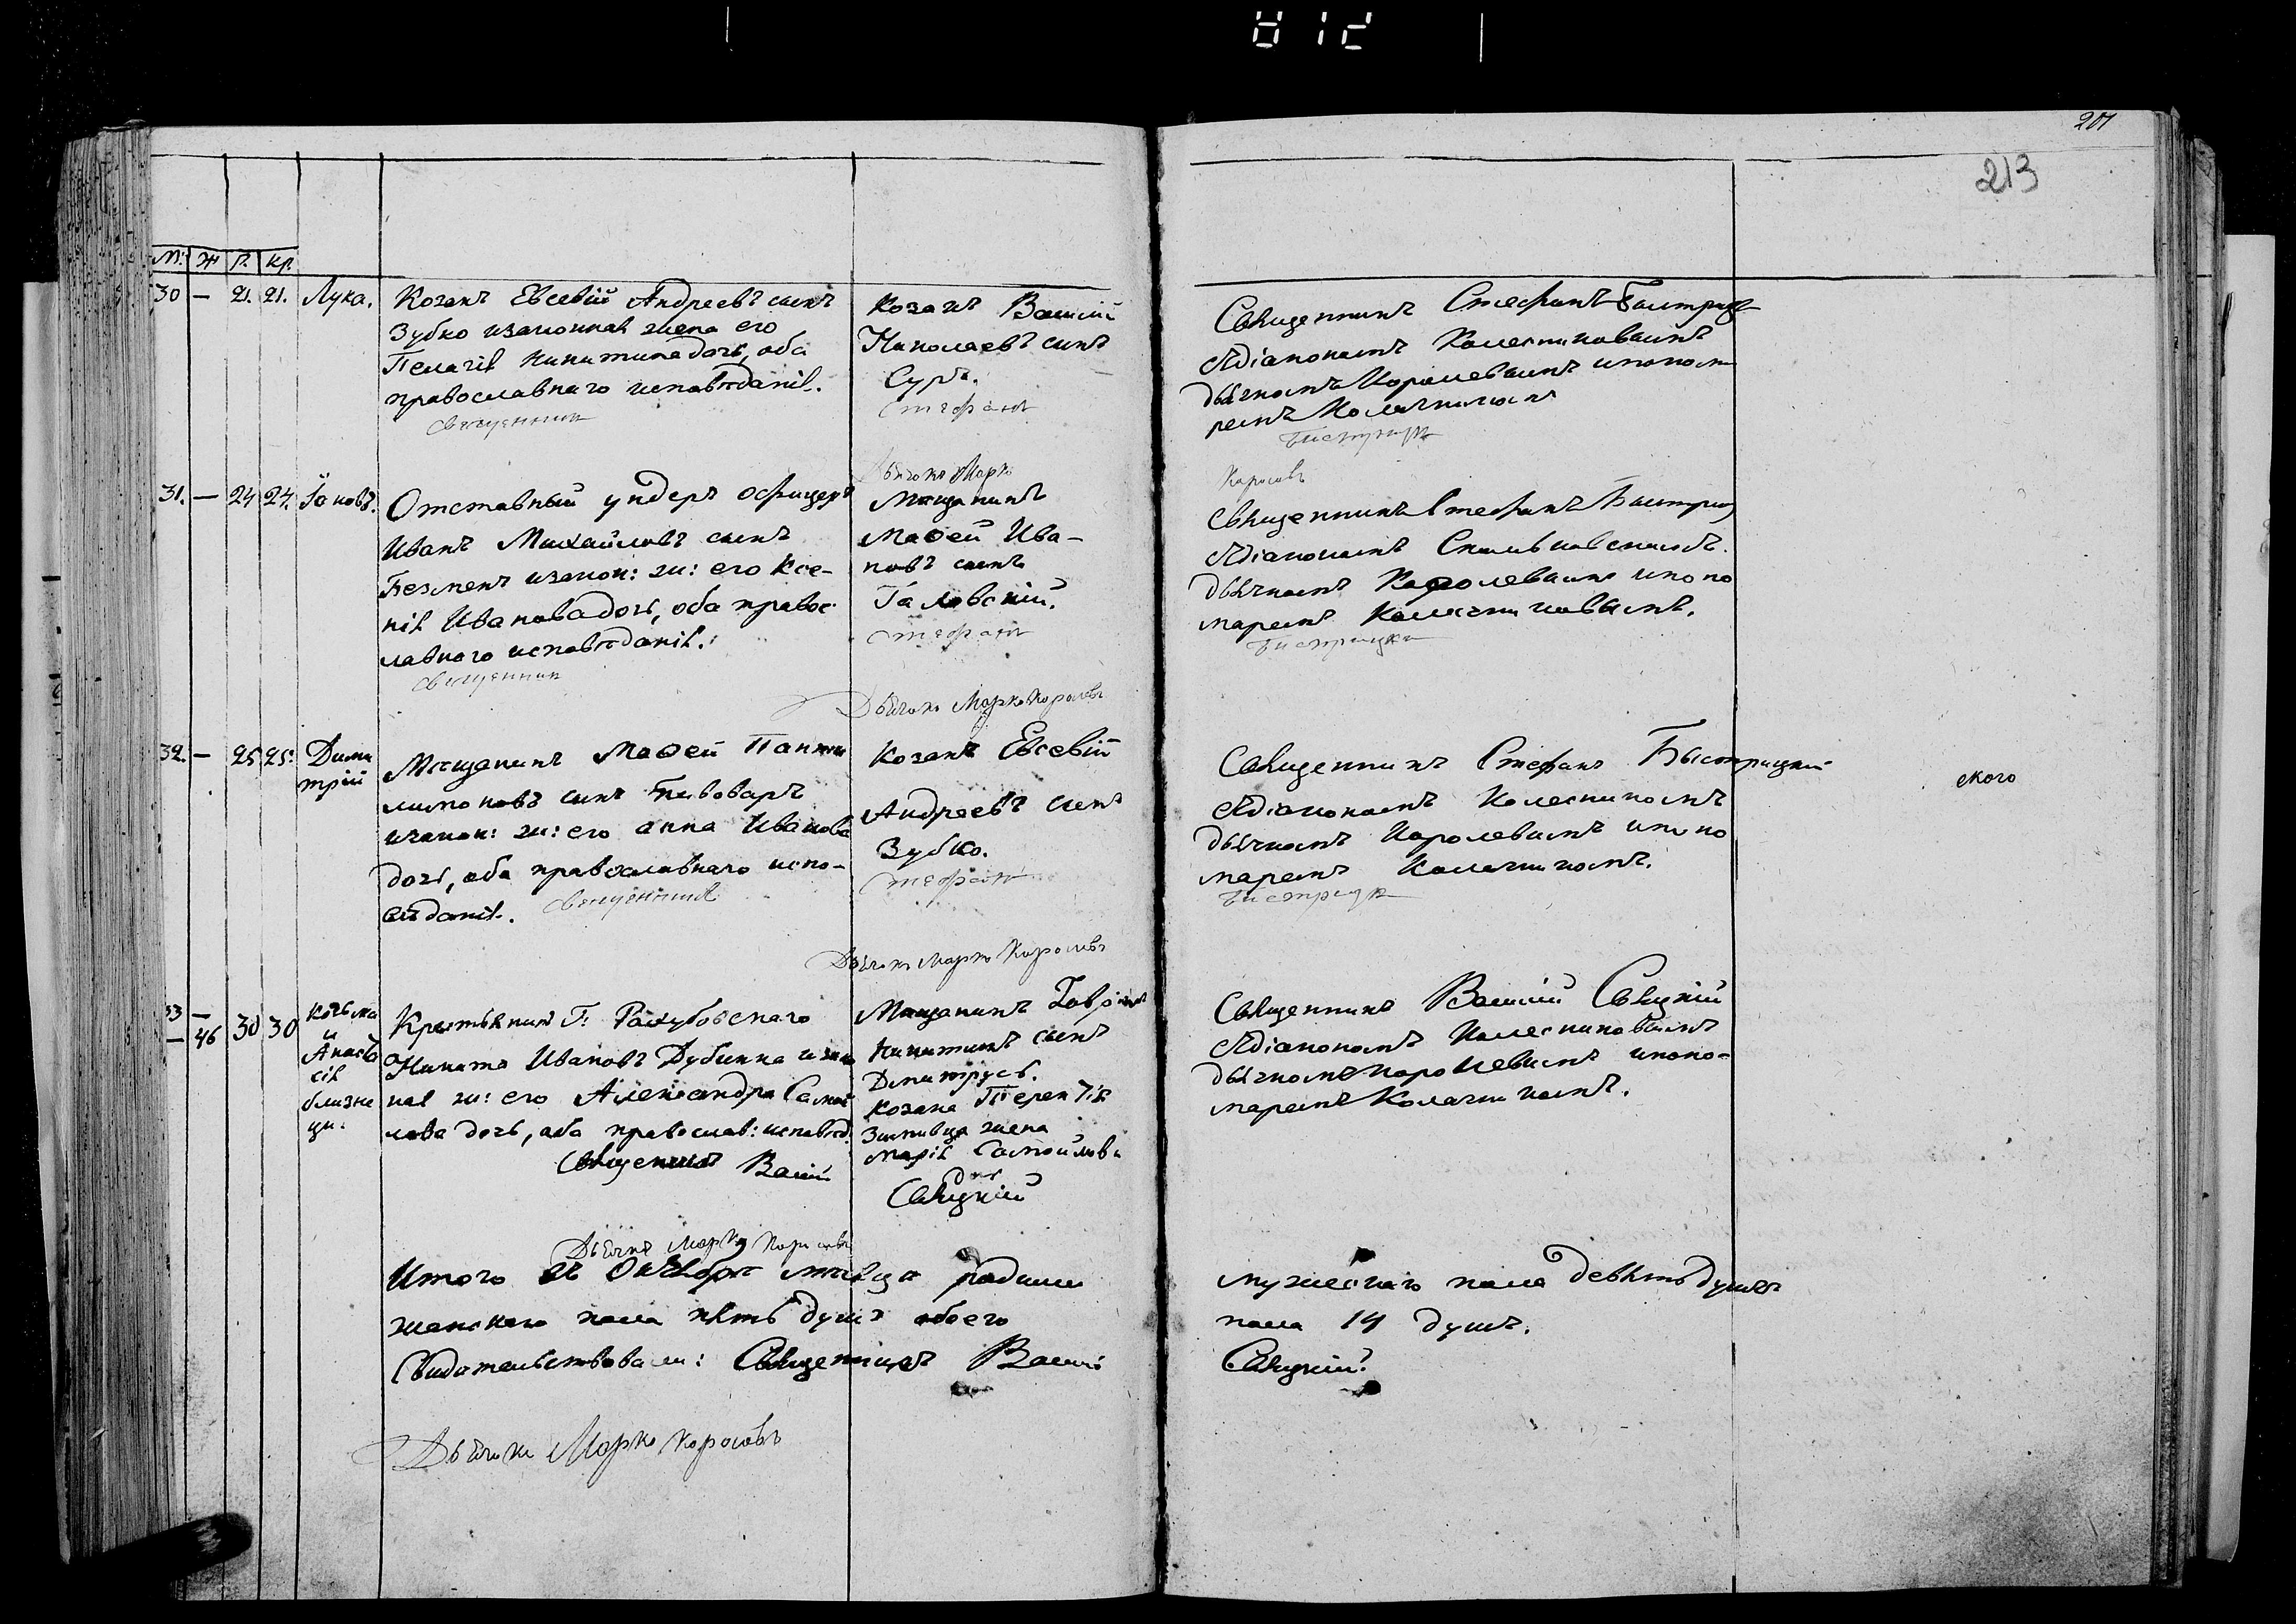 012
201
213
М: Ж Р. Кр.
30 — 21. 21. Лука.
Козакъ Евсевій Андреевъ сынъ
Зубко изаконная жена его
Пелагія Никитина дочь, оба
православнаго исповѣданія.
священник
Козакъ Василій
Николаевъ сынъ
Суръ.
Стефанъ
Священникъ Стефанъ Быстриц
здіакономъ Колесниковымъ
дьячкомъ Королевымъ ипоном
ремъ
Дьячокъ Марко
Королевъ
31. — 24 24. Іаковъ.
Отставный ундеръ офицеръ
Иванъ Михайловъ сынъ
Безменъ изакон: ж: его Ксе-
нія Иванова дочь, оба правос
лавного исповѣданія.
священник
Мѣщанинъ
Маѳей Ива-
новъ сынъ
Галовскій.
Стефанъ
Священникъ Стефанъ Быстриц
здіакономъ
дьячкомъ Королевымъ ипоно
маремъ
Быстрицки
Дьячокъ Марко Королевъ
32. — 25 25. Дими
трій
Мѣщанинъ Маѳей Панти
лимоновъ сынъ Пивоваръ
изакон: ж: его анна Иванова
дочь, оба православнаго испо-
вѣданія.
священник
Козакъ Евсевій
Андреевъ сынъ
Зубко.
Стефанъ
Священникъ Стефанъ Быстрицкій
здіакономъ Колесникомъ
дьячкомъ Королевымъ ипоно
маремъ
ского
Дьячокъ Марко Королевъ
33 —
— 46 30 30
Козьма
и
Анаста
сія
близне
цы.
Крестьянинъ Г: Ракубовскаго
Никита Ивановъ Дубинка изакон
ная ж: его Александра Самой
лова дочь, оба православ: исповѣд.
Священникъ Василій
Мѣщанинъ Гавріилъ
Никитинъ сынъ
Димитрусь.
Козака Терентія
жена
Марія Самойлова
дочь
Свяцкій
Священникъ Василій Свяцкій
здіакономъ Колесниковымъ
дьячкомъ Королевымъ ипоно-
маремъ
Дьячокъ Марко Королевъ
Итого въ Октябрѣ мѣсяцѣ родилось мужескаго пола девять душъ
женскаго пола пять душъ обоего пола 14 душъ.
Свидѣтельствовали: Священникъ Василій Свяцкій
Дьячокъ Марко Королевъ